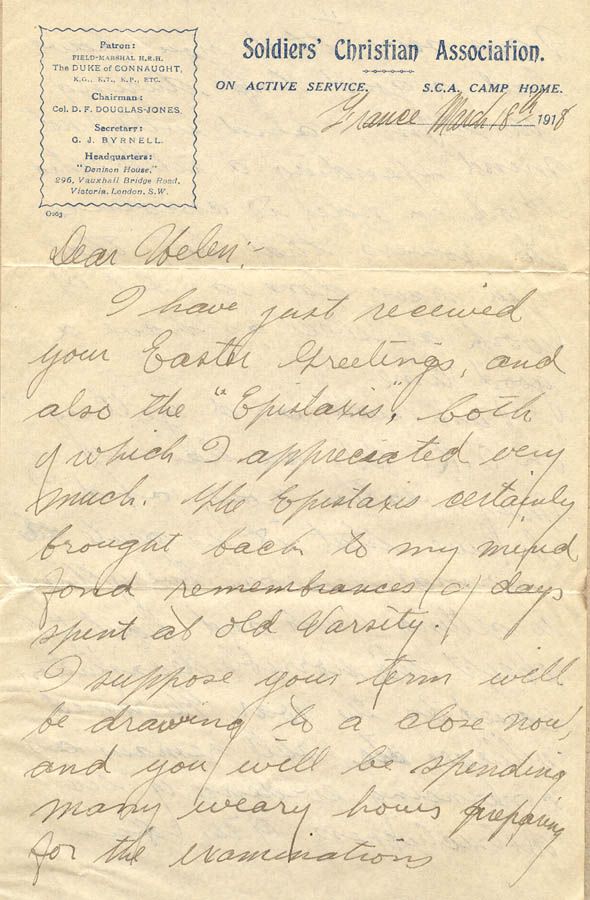 Patron:
FIELD-MARSHAL H.R.H.
The DUKE of CONNAUGHT,
K.G., K.T., K.P., ETC.
Chairman:
Col. D. F. DOUGLAS-JONES.
Secretary:
G. J. BYRNELL.
Headquarters:
"Denison House,"
296, Vauxhall Bridge Road,
Victoria, London, S.W.
O263
Soldiers' Christian Association.
ON ACTIVE SERVICE. S.C.A. CAMP HOME.
France March 18th 1918
Dear Helen:-
I have just received
your Easter Greetings, and
also the "Epistaxis", both
of which I appreciated very
much. The Epistaxis certainly
brought back to my mind
fond remembrances of days
spent at old Varsity.
I suppose your term will
be drawing to a close now,
and you will be spending
many weary hours preparing
for the examinations